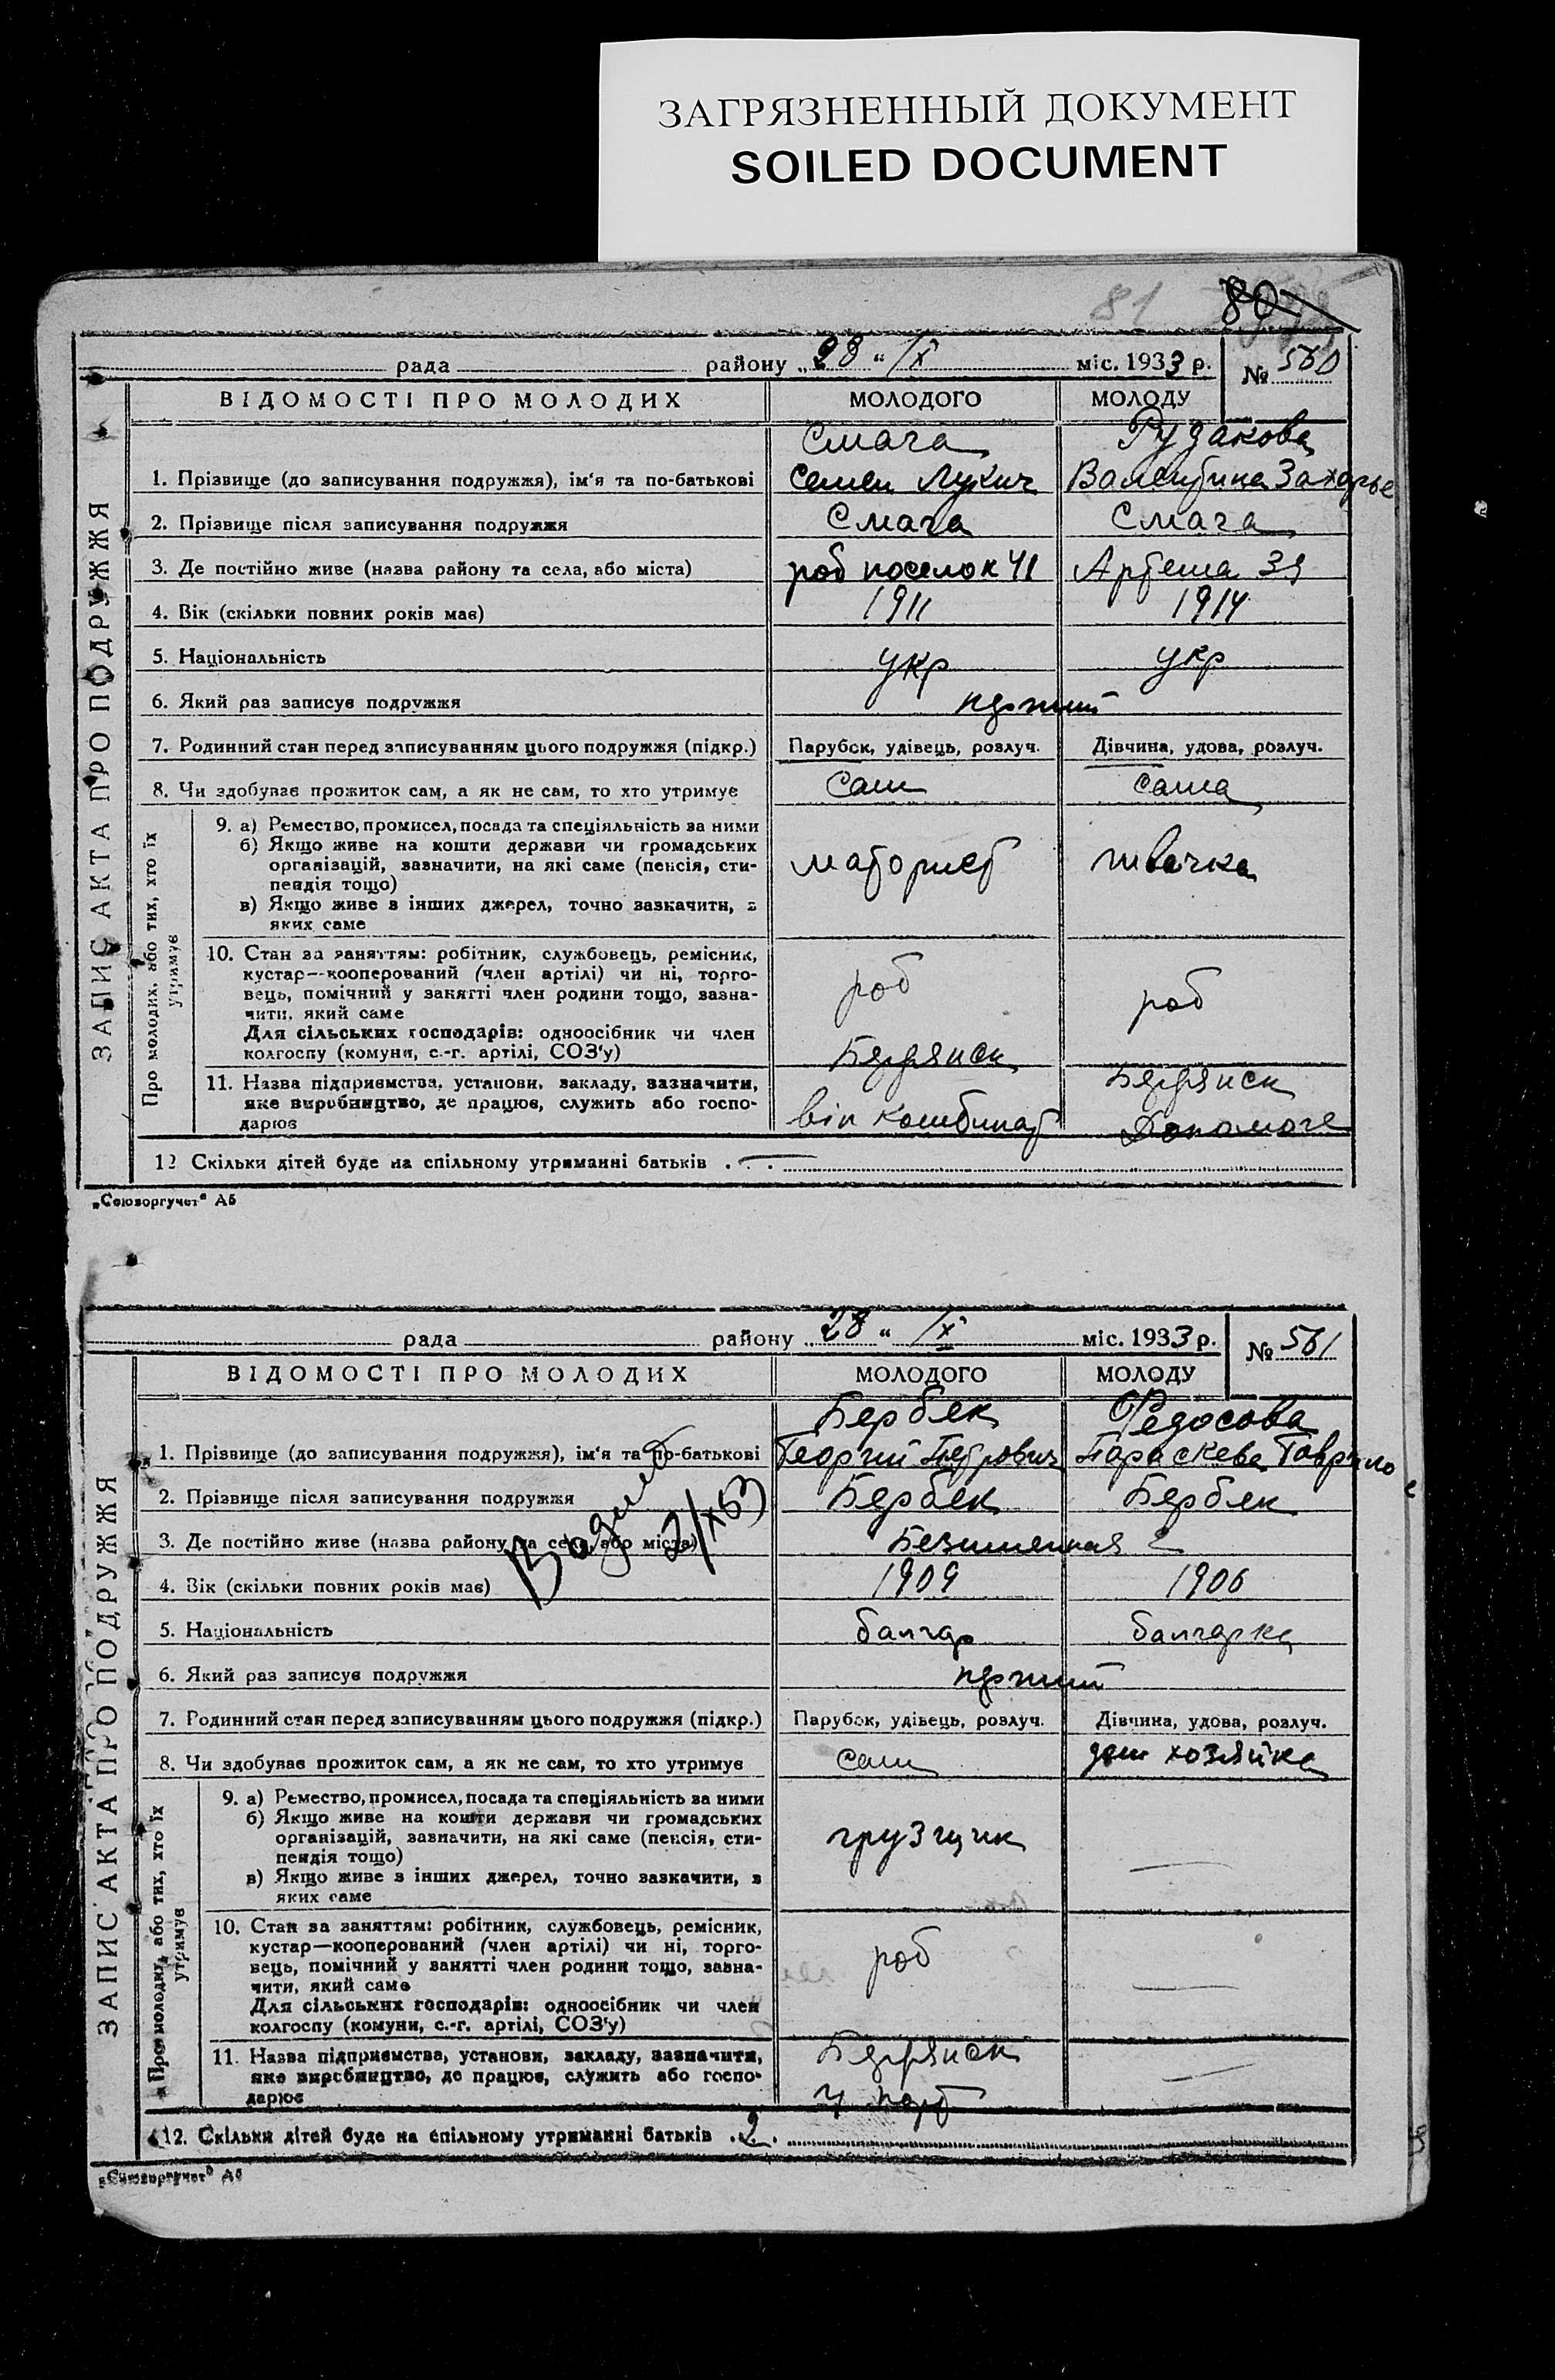 ЗАГРЯЗНЕННЫЙ ДОКУМЕНТ
SOILED DOCUMENT
81 80
рада району „28“ IX міс. 1933 р. № 560
ВІДОМОСТІ ПРО МОЛОДИХ МОЛОДОГО МОЛОДУ
ЗАПИС АКТА ПРО ПОДРУЖЖЯ
Смага Рудакова
1. Прізвище (до записування подружжя), ім'я та по-батькові Семен Лукич Валентина Захарье
2. Прізвище після записування подружжя Смага Смага
3. Де постійно живе (назва району та села, або міста) роб поселок 41 Артема 39
4. Вік (скільки повних років має) 1911 1914
5. Національність укр укр
6. Який раз записує подружжя перший
7. Родинний стан перед записуванням цього подружжя (підкр.) Парубок, удівець, розлуч. Дівчина, удова, розлуч.
8. Чи здобуває прожиток сам, а як не сам, то хто утримує Сам сама
Про молодих, або тих, хто їх утримує
9. а) Ремество, промисел, посада та спеціяльність за ними
б) Якщо живе на кошти держави чи громадських
організацій, зазначити, на які саме (пенсія, сти-
пендія тощо) моторист швачка
в) Якщо живе з інших джерел, точно зазначити, з
яких саме
10. Стан за заняттям: робітник, службовець, ремісник,
кустар—кооперований (член артілі) чи ні, торго-
вець, помічний у занятті член родини тощо, зазна-
чити, який саме роб роб
Для сільських господарів: одноосібник чи член
колгоспу (комуни, с.-г. артілі, СОЗ'у) Бердянск
11. Назва підприємства, установи, закладу, зазначити, Бердянск
яке виробництво, де працює, служить або госпо-
дарює він комбинат Допомога
12 Скільки дітей буде на спільному утриманні батьків . — .
„Союзоргучет“ А5
рада району „28“ IX міс. 1933 р. № 561
ВІДОМОСТІ ПРО МОЛОДИХ МОЛОДОГО МОЛОДУ
ЗАПИС АКТА ПРО ПОДРУЖЖЯ
Бербек Федосова
1. Прізвище (до записування подружжя), ім'я та по-батькові Георгий Петрович Параскева Гаврило
2. Прізвище після записування подружжя Бербек Бербек
3. Де постійно живе (назва району та села, або міста) Безименная 2
4. Вік (скільки повних років має) 1909 1906
5. Національність болгар болгарка
6. Який раз записує подружжя перший
7. Родинний стан перед записуванням цього подружжя (підкр.) Парубок, удівець, розлуч. Дівчина, удова, розлуч.
8. Чи здобуває прожиток сам, а як не сам, то хто утримує сам дом хозяйка
Про молодих, або тих, хто їх утримує
9. а) Ремество, промисел, посада та спеціяльність за ними
б) Якщо живе на кошти держави чи громадських
організацій, зазначити, на які саме (пенсія, сти-
пендія тощо) грузщик —
в) Якщо живе з інших джерел, точно зазначити, з
яких саме
10. Стан за заняттям: робітник, службовець, ремісник,
кустар—кооперований (член артілі) чи ні, торго-
вець, помічний у занятті член родини тощо, зазна-
чити, який саме роб —
Для сільських господарів: одноосібник чи член
колгоспу (комуни, с.-г. артілі, СОЗ'у)
11. Назва підприємства, установи, закладу, зазначити, Бердянск —
яке виробництво, де працює, служить або госпо-
дарює порт
12. Скільки дітей буде на спільному утриманні батьків . 2 .
„Союзоргучет“ А5